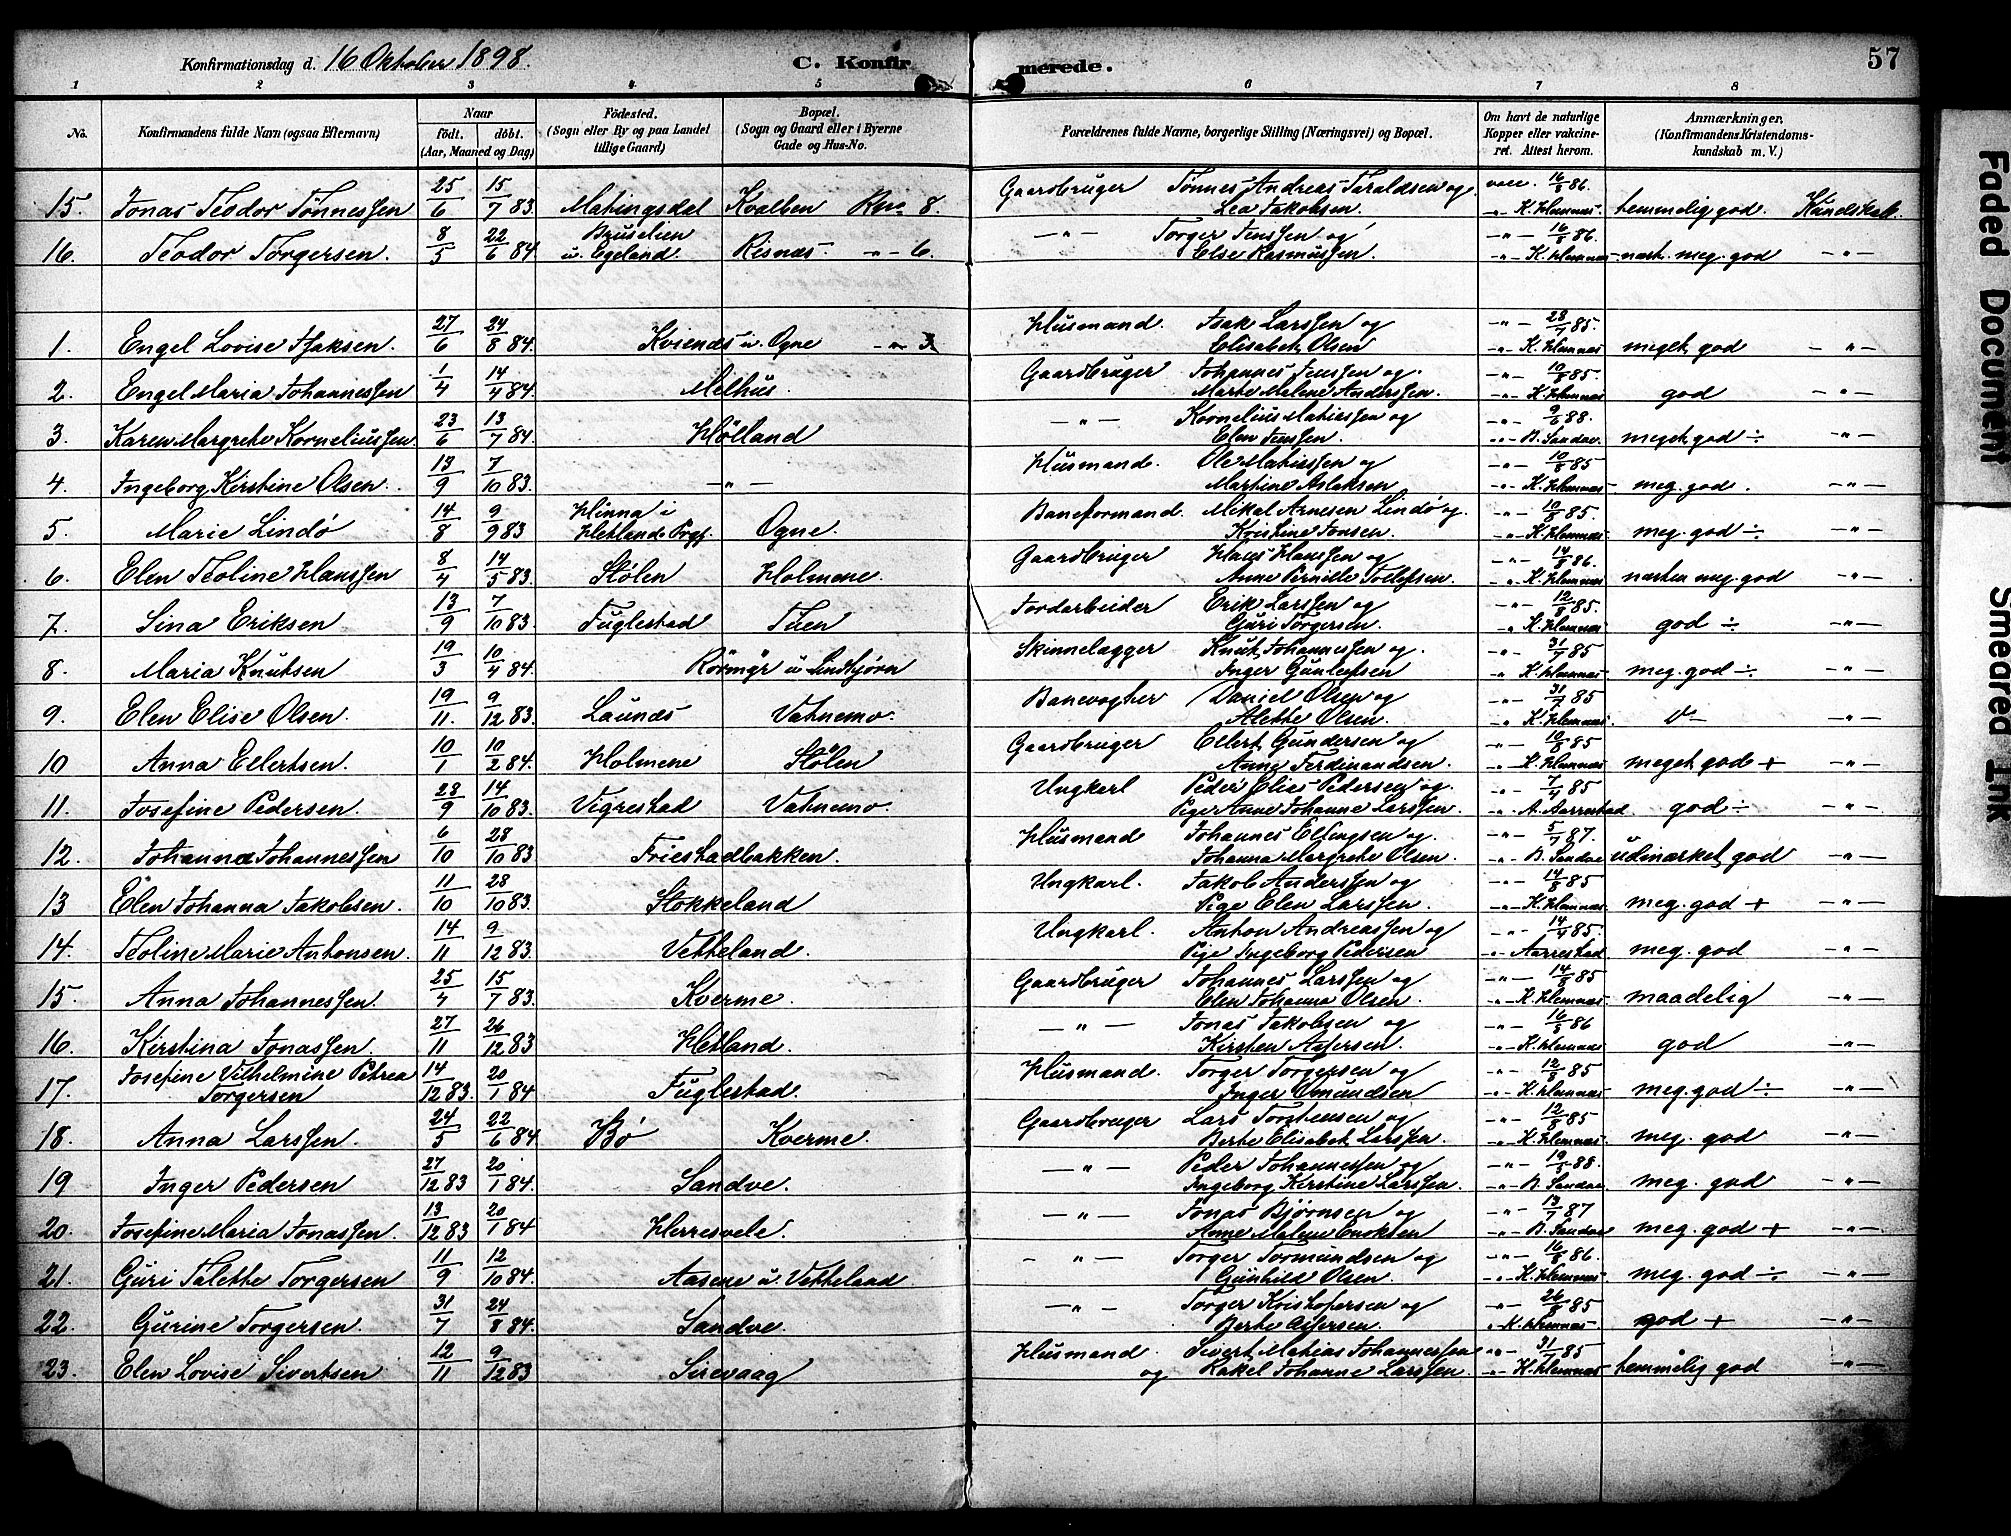 Konfirmationsdag d. 16 Oktober 1898. C. Konfirmerede. 57
1 2 3 4 5 6 7 8
No. Konfirmandens fulde Navn (ogsaa Efternavn) Naar født. døbt. (Aar, Maaned og Dag) Fødested. (Sogn eller By og paa Landet tillige Gaard) Bopæl. (Sogn og Gaard eller i Byerne Gade og Hus-No. Forældrenes fulde Navne, borgerlige Stilling (Næringsvei) og Bopæl. Om havt de naturlige Kopper eller vakcineret. Attest herom. Anmærkninger, (Konfirmandens Kristendomskundskab m. V.)
15. Jonas Teodor Tønnessen 25/6 15/7 83. Matingsdal Kvalben 8. Gaardbruger Tønnes Andreas Taraldsen og Lea Jakobsen. vacc. 16/8 86. K. Hemnæs. temmelig god. Kundskab.
16. Teodor Torgersen. 8/5 22/6 84. Bruselien u. Egeland. Risnæs -"- 6. -"- Torger Jenssen og Else Rasmussen. -"- 16/8 86. -"- K. Hemnæs næst. meg. god -"-
1. Engel Lovise Isaksen. 27/6 24/8 84. Kvienæs u. Ogne -"- 3 Husmand. Isak Larssen og Elisabet Olsen -"- 28/7 85. -"- K. Hemnæs meget god -"-
2. Engel Maria Johannessen 1/4 14/4 84. Melhus. Gaardbruger Johannes Jenssen og Marte Malene Anderssen. -"- 10/8 85. -"- K. Hemnæs god -"-
3. Karen Margrete Korneliussen 23/6 13/7 84. Hølland -"- Kornelius Matiassen og Elen Jenssen. -"- 9/6 88. -"- B. Sandve. meget god ÷ -"-
4. Ingeborg Kirstine Olsen. 13/9 7/10 83. -"- Husmand. Ole Matiassen og Martine Aslaksen -"- 10/8 85 -"- K. Hemnæs meg. god. -"-
5. Marie Lindø 14/8 9/9 83 Hinna i Hetlands Prgj. Ogne. Baneformand. Mikal Arnesen Lindø og Kristine Jonsen. -"- 10/8 85. -"- K. Hemnæs meg. god ÷ -"-
6. Elen Teoline Hanssen 8/4 14/5 83. Stølen Holmene. Gaardbruger Hans Hanssen og Anne Pernille Tollefsen. -"- 14/8 86. -"- K. Hemnæs næsten meg. god -"-
7. Sina Eriksen 13/9 7/10 83. Fuglestad Tuen Jordarbeider Erik Larssen og Guri Torgersen. -"- 12/8 85. -"- K. Hemnæs god ÷ -"-
8. Maria Knutsen 19/3 10/4 84. Rørmyr u. Lindtjørn Skinnelægger Knut Johannessen og Inger Gunleifsen -"- 31/7 85 -"- K. Hemnæs meg. god ÷ -"-
9. Elen Elise Olsen. 19/11. 9/12 83. Launæs Vatnemo. Banevogter Daniel Olsen og Alette Olsen. -"- 31/7 85 -"- K. Hemnæs. -"-
10 Anna Eilertsen. 10/1 10/2 84. Holmene Stølen Gaardbruger Eilert Gundersen og Anne Ferdinandsen. -"- 10/8 85 -"- K. Hemnæs meget god + -"-
11. Josefine Pedersen 28/9 14/10 83. Vigrestad Vatnemo. Ungkarl Peder Elias Pedersen og Pige Anne Johanne Larssen. -"- 7/4 85 -"- A. Aarrestad god ÷ -"-
12. Johanna Johannessen 6/10 28/10 83 Friestadbakken. Husmand Johannes Elfingsen og Johanna Margrete Olsen. -"- 5/7 87. -"- B. Sandve udmærket god -"-
13 Elen Johanna Jakobsen. 11/10 28/10 83. Stokkeland Ungkarl. Jakob Anderssen og Pige Elen Larssen. -"- 14/8 85 -"- K. Hemnæs. meg. god + -"-
14. Teoline Marie Antonsen. 14/11 9/12 83. Vetteland. Ungkarl. Anton Andreassen og Pige Ingeborg Pedersen -"- 14/4 85. -"- Aarrestad meg. god -"-
15. Anna Johannessen. 25/4 15/7 83. Kverme. Gaardbruger Johannes Larssen og Elen Johanna Olsen. -"- 14/8 85 -"- K. Hemnæs maadelig -"-
16. Kirstina Jonassen. 27/11 26/12 83 Hetland. -"- Jonas Jakobsen og Kirsten Assersen. -"- 16/8 86 -"- K. Hemnæs god -"-
17. Josefine Vilhelmine Petrea Torgersen 14/12 83. 20/1 84 Fuglestad. Husmand. Torger Torgersen og Inger Omundsen -"- 12/8 85 -"- K. Hemnæs meg. god ÷ -"-
18. Anna Larssen. 24/5 22/6 84 Bø Kverme. Gaardbruger Lars Torstensen og Berte Elisabet Larssen. -"- 12/8 85 -"- K. Hemnæs meg. god -"-
19 Inger Pedersen 27/12 83 20/1 84. Sandve. -"- Peder Johannessen og Ingeborg Kirstine Larssen. -"- 19/6 88. -"- B. Sandve meg. god -"-
20. Josefine Maria Jonassen. 13/12 83 20/1 84 Herresvele. -"- Jonas Bjørnsen og Anne Malene Enoksen -"- 13/7 87 -"- B. Sandve meg. god + -"-
21. Guri Talette Torgersen 11/9 12/10 84. Aasene u. Vetteland -"- Torger Tormundsen og Gunhild Olsen -"- 16/8 86. -"- K. Hemnæs meg. god ÷ -"-
22. Gurine Torgersen. 31/7 24/8 84. Sandve. -"- Torger Kristofersen og Berte Assersen. -"- 26/8 85 -"- K. Hemnæs. god + -"-
23. Elen Lovise Sivertsen 12/11 9/12 83 Sirevaag Husmand. Sivert Matias Johannessen og Rakel Johanne Larssen. -"- 31/7 85 -"- K. Hemnæs temmelig god -"-
Faded Document
Smeared Ink